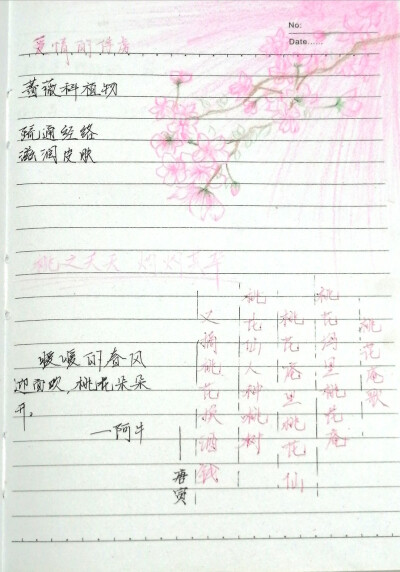 No:
Date......
爱情的俘虏
蔷薇科植物
疏通经络
滋润皮肤
桃之夭夭 灼灼其华
桃花庵歌
桃花坞里桃花庵
桃花庵里桃花仙
桃花仙人种桃树
又摘桃花换酒钱
——唐寅
暖暖的春风
迎面吹,桃花朵朵
开。
—阿牛